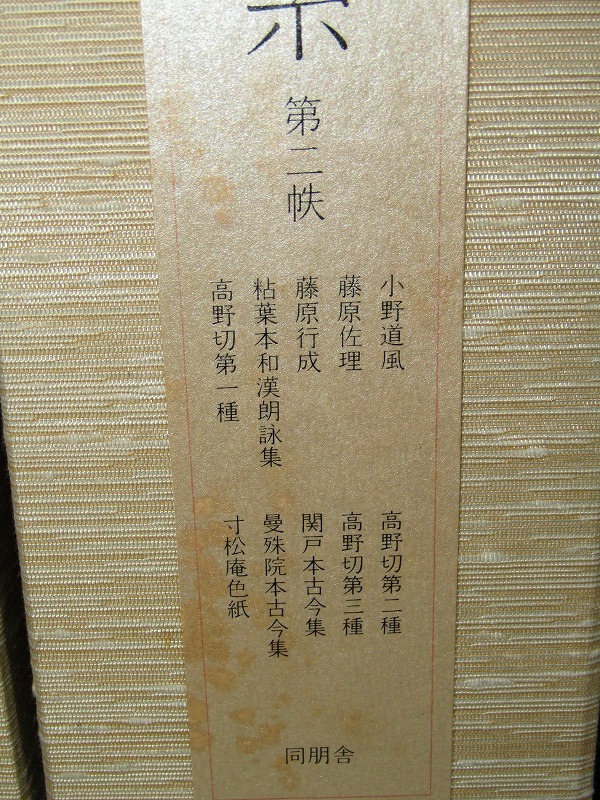 第二帙
小野道風
藤原佐理
藤原行成
粘葉本和漢朗詠集
高野切第一種
高野切第二種
高野切第三種
関戸本古今集
曼殊院本古今集
寸松庵色紙
同朋舎